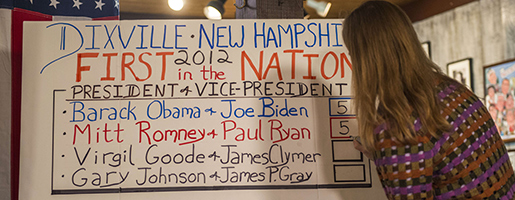 DIXVILLE • NEW HAMPSHI
FIRST 2012 in the NATION
PRESIDENT & VICE-PRESIDENT
• Barack Obama & Joe Biden 5
• Mitt Romney & Paul Ryan 5
• Virgil Goode & James Clymer
• Gary Johnson & James P. Gray